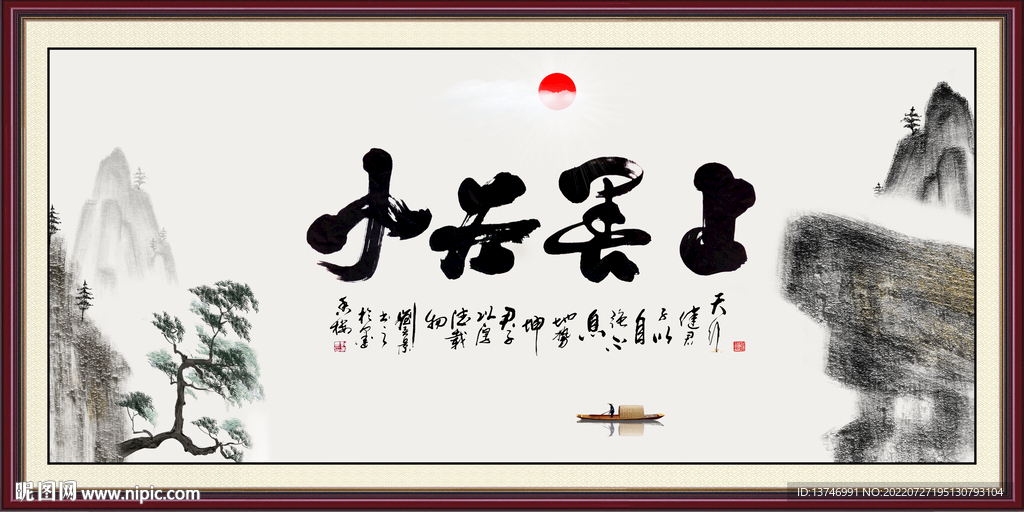 上善若水
天行健君子以自強不息地勢坤君子以厚德載物
昵图网 www.nipic.com
ID:13746991 NO:20220727195130793104